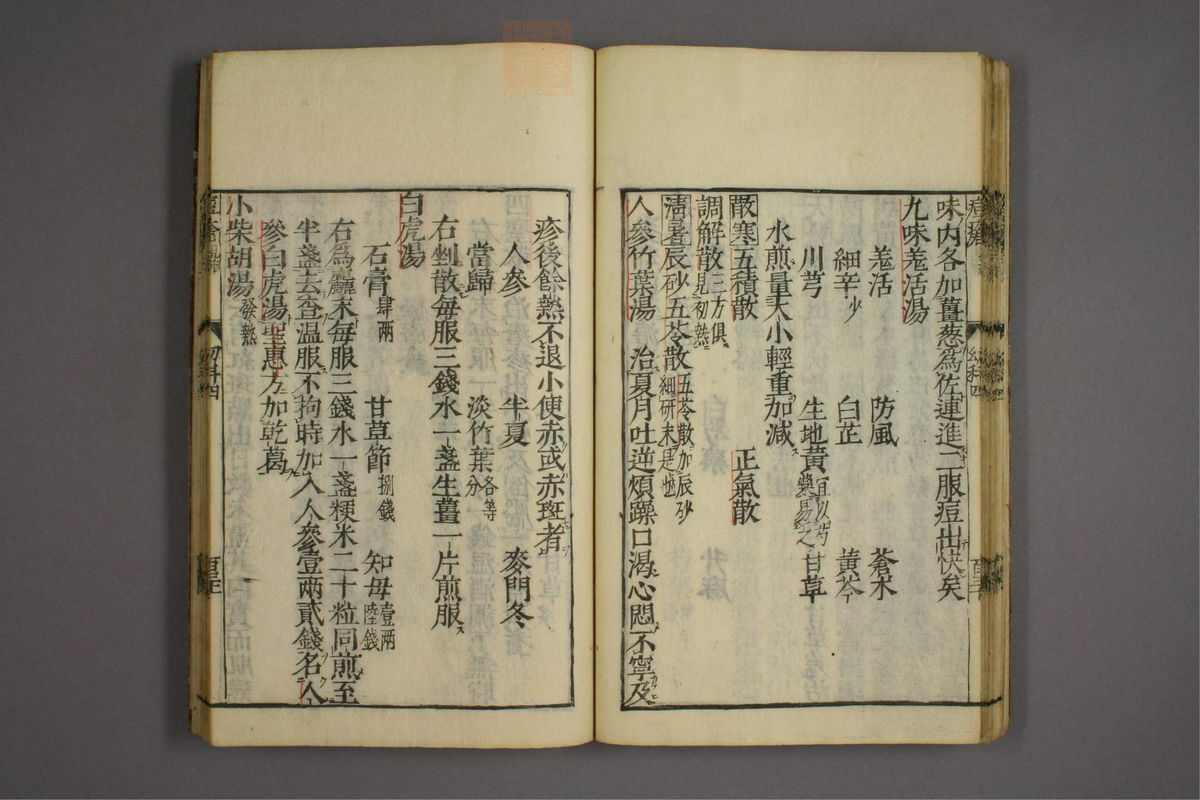 味内各加薑葱爲佐連進二服痘出快矣
九味羗活湯
羗活 防風 蒼朮
細辛少 白芷 黃芩
川芎 生地黃宜以芍藥易之 甘草
水煎量大小輕重加減
散寒五積散 正氣散
調解散三方俱見初熱
清暑辰砂五苓散五苓散加辰砂細研末是也
人參竹葉湯 治夏月吐逆煩躁口渴心悶不寧及
疹後餘熱不退小便赤或赤斑者
人參 半夏 麥門冬
當歸 淡竹葉各等分
右剉散每服三錢水一盞生薑一片煎服
白虎湯
石膏肆兩 甘草節捌錢 知母壹兩陸錢
右爲麤末每服三錢水一盞粳米二十粒同煎至
半盞去查溫服不拘時加入人參壹兩貳錢名人
參白虎湯聖惠方加乾葛
小柴胡湯發熱
幼科四